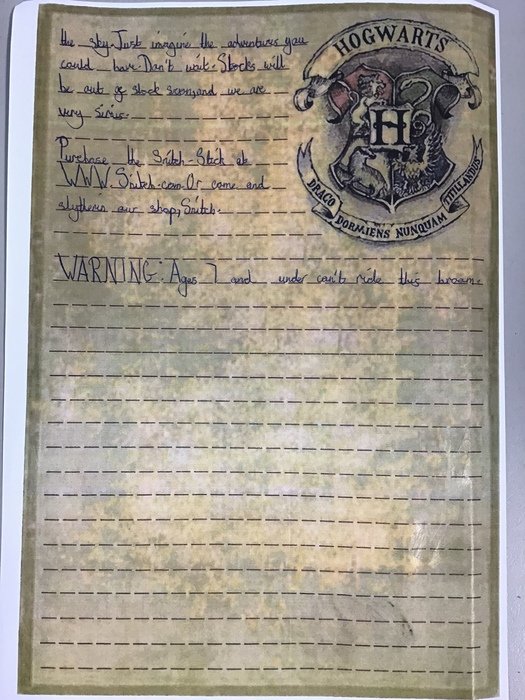 the sky. Just imagine the adventures you
could have. Don't wait. Stocks will
be out of stock soon, and we are
very Sirius.
Purchase the Snitch-Stick at
WWW.Snitch.com. Or come and
slytherin our shop, Snitch.
WARNING: Ages 7 and under can't ride this broom.
HOGWARTS
H
DRACO DORMIENS NUNQUAM TITILLANDUS